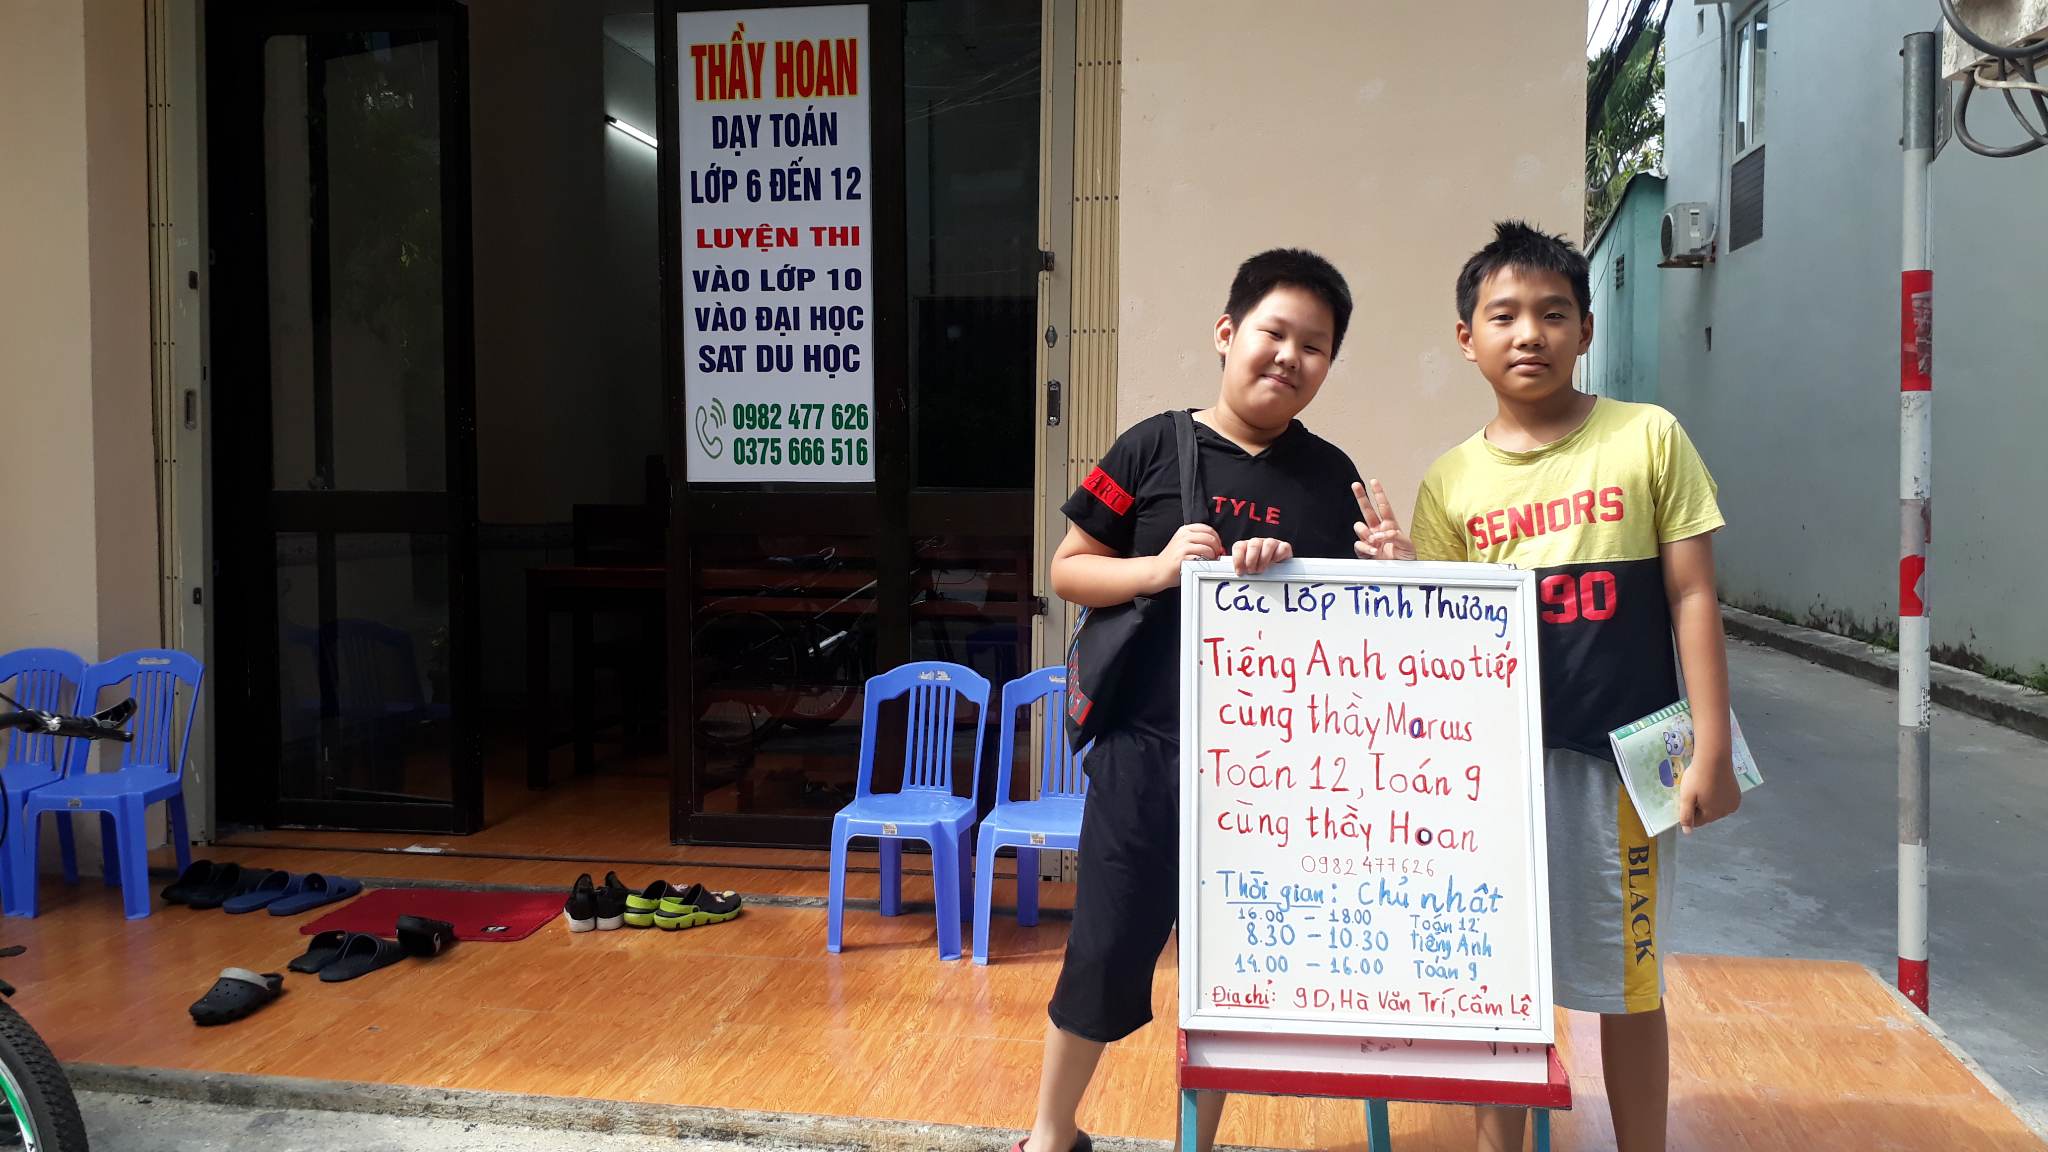 THẦY HOAN
DẠY TOÁN
LỚP 6 ĐẾN 12
LUYỆN THI
VÀO LỚP 10
VÀO ĐẠI HỌC
SAT DU HỌC
0982 477 626
0375 666 516
ART
TYLE
SENIORS
90
BLACK
Các Lớp Tình Thương
. Tiếng Anh giao tiếp
cùng thầy Marcus
. Toán 12, Toán 9
cùng thầy Hoan
0982 477626
. Thời gian: Chủ nhật
16.00 - 18.00 Toán 12
8.30 - 10.30 tiếng Anh
14.00 - 16.00 Toán 9
. Địa chỉ: 9D, Hà Văn Trí, Cẩm Lệ